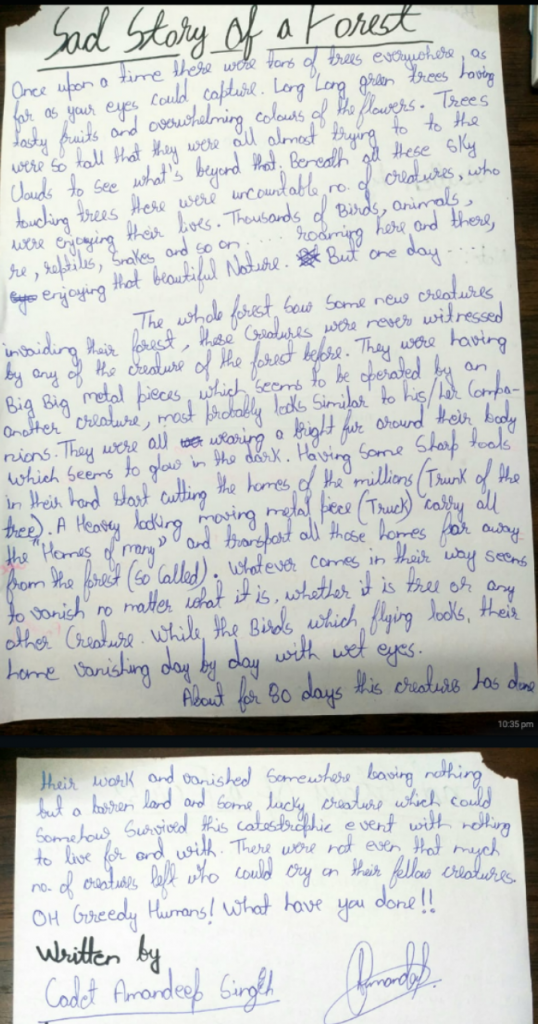 Sad Story Of a Forest
Once upon a time there were tons of trees everywhere, as
far as your eyes could capture. Long Long green trees having
tasty fruits and overwhelming colours of the flowers. Trees
were so tall that they were all almost trying to to the
Clouds to see what's beyond that. Beneath all these sky
touching trees there were uncountable no. of creatures, who
were enjoying their lives. Thousands of Birds, animals,
re, reptiles, snakes and so on .... roaming here and there,
enjoying that beautiful Nature. But one day ....
The whole forest saw some new creatures
invaiding their forest, these Creatures were never witnessed
by any of the creature of the forest before. They were having
Big Big metal pieces which seems to be operated by an
another creature, most probably looks similar to his/her Compa-
nions. They were all wearing a bright fur around their body
which seems to glow in the dark. Having some sharp tools
in their hand start cutting the homes of the millions (Trunk of the
tree). A Heavy looking moving metal piece (Truck) carry all
the "Homes of many" and transport all those homes far away
from the forest (so Called). Whatever comes in their way seems
to vanish no matter what it is, whether it is tree or any
other Creature. While the Birds which flying looks, their
home vanishing day by day with wet eyes.
About for 30 days this creatures has done
10:35 pm
their work and vanished somewhere leaving nothing
but a barren land and some lucky creature which could
somehow survived this catestrophic event with nothing
to live for and with. There were not even that much
no. of creatures left who could cry on their fellow creatures.
OH Greedy Humans! What have you done!!
Written by
Cadet Amandeep Singh
Amandeep